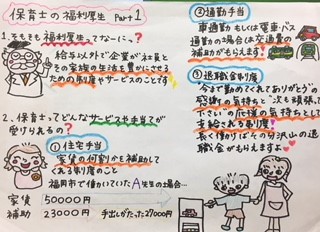 保育士の福利厚生 Part1
1、そもそも福利厚生ってなーに？
給与以外で企業が社員と
その家族の生活を豊かにさせる
ための制度やサービスのことです
2、保育士ってどんなサービスや手当てが
受けられるの？
① 住宅手当
家賃の何割かを補助して
くれる制度のこと
福岡市で働いていたA先生の場合…
家賃 50000円
補助 23000円 手出しがたった27000円
② 通勤手当
車通勤もしくは電車・バス
通勤の場合は交通費の
補助がもらえます
③ 退職金制度
今まで勤めてくれてありがとうの
感謝の気持ちと"次も頑張って
下さい"の応援の気持ちとして
支給される制度
長く働けばその分沢山の退
職金がもらえますよ